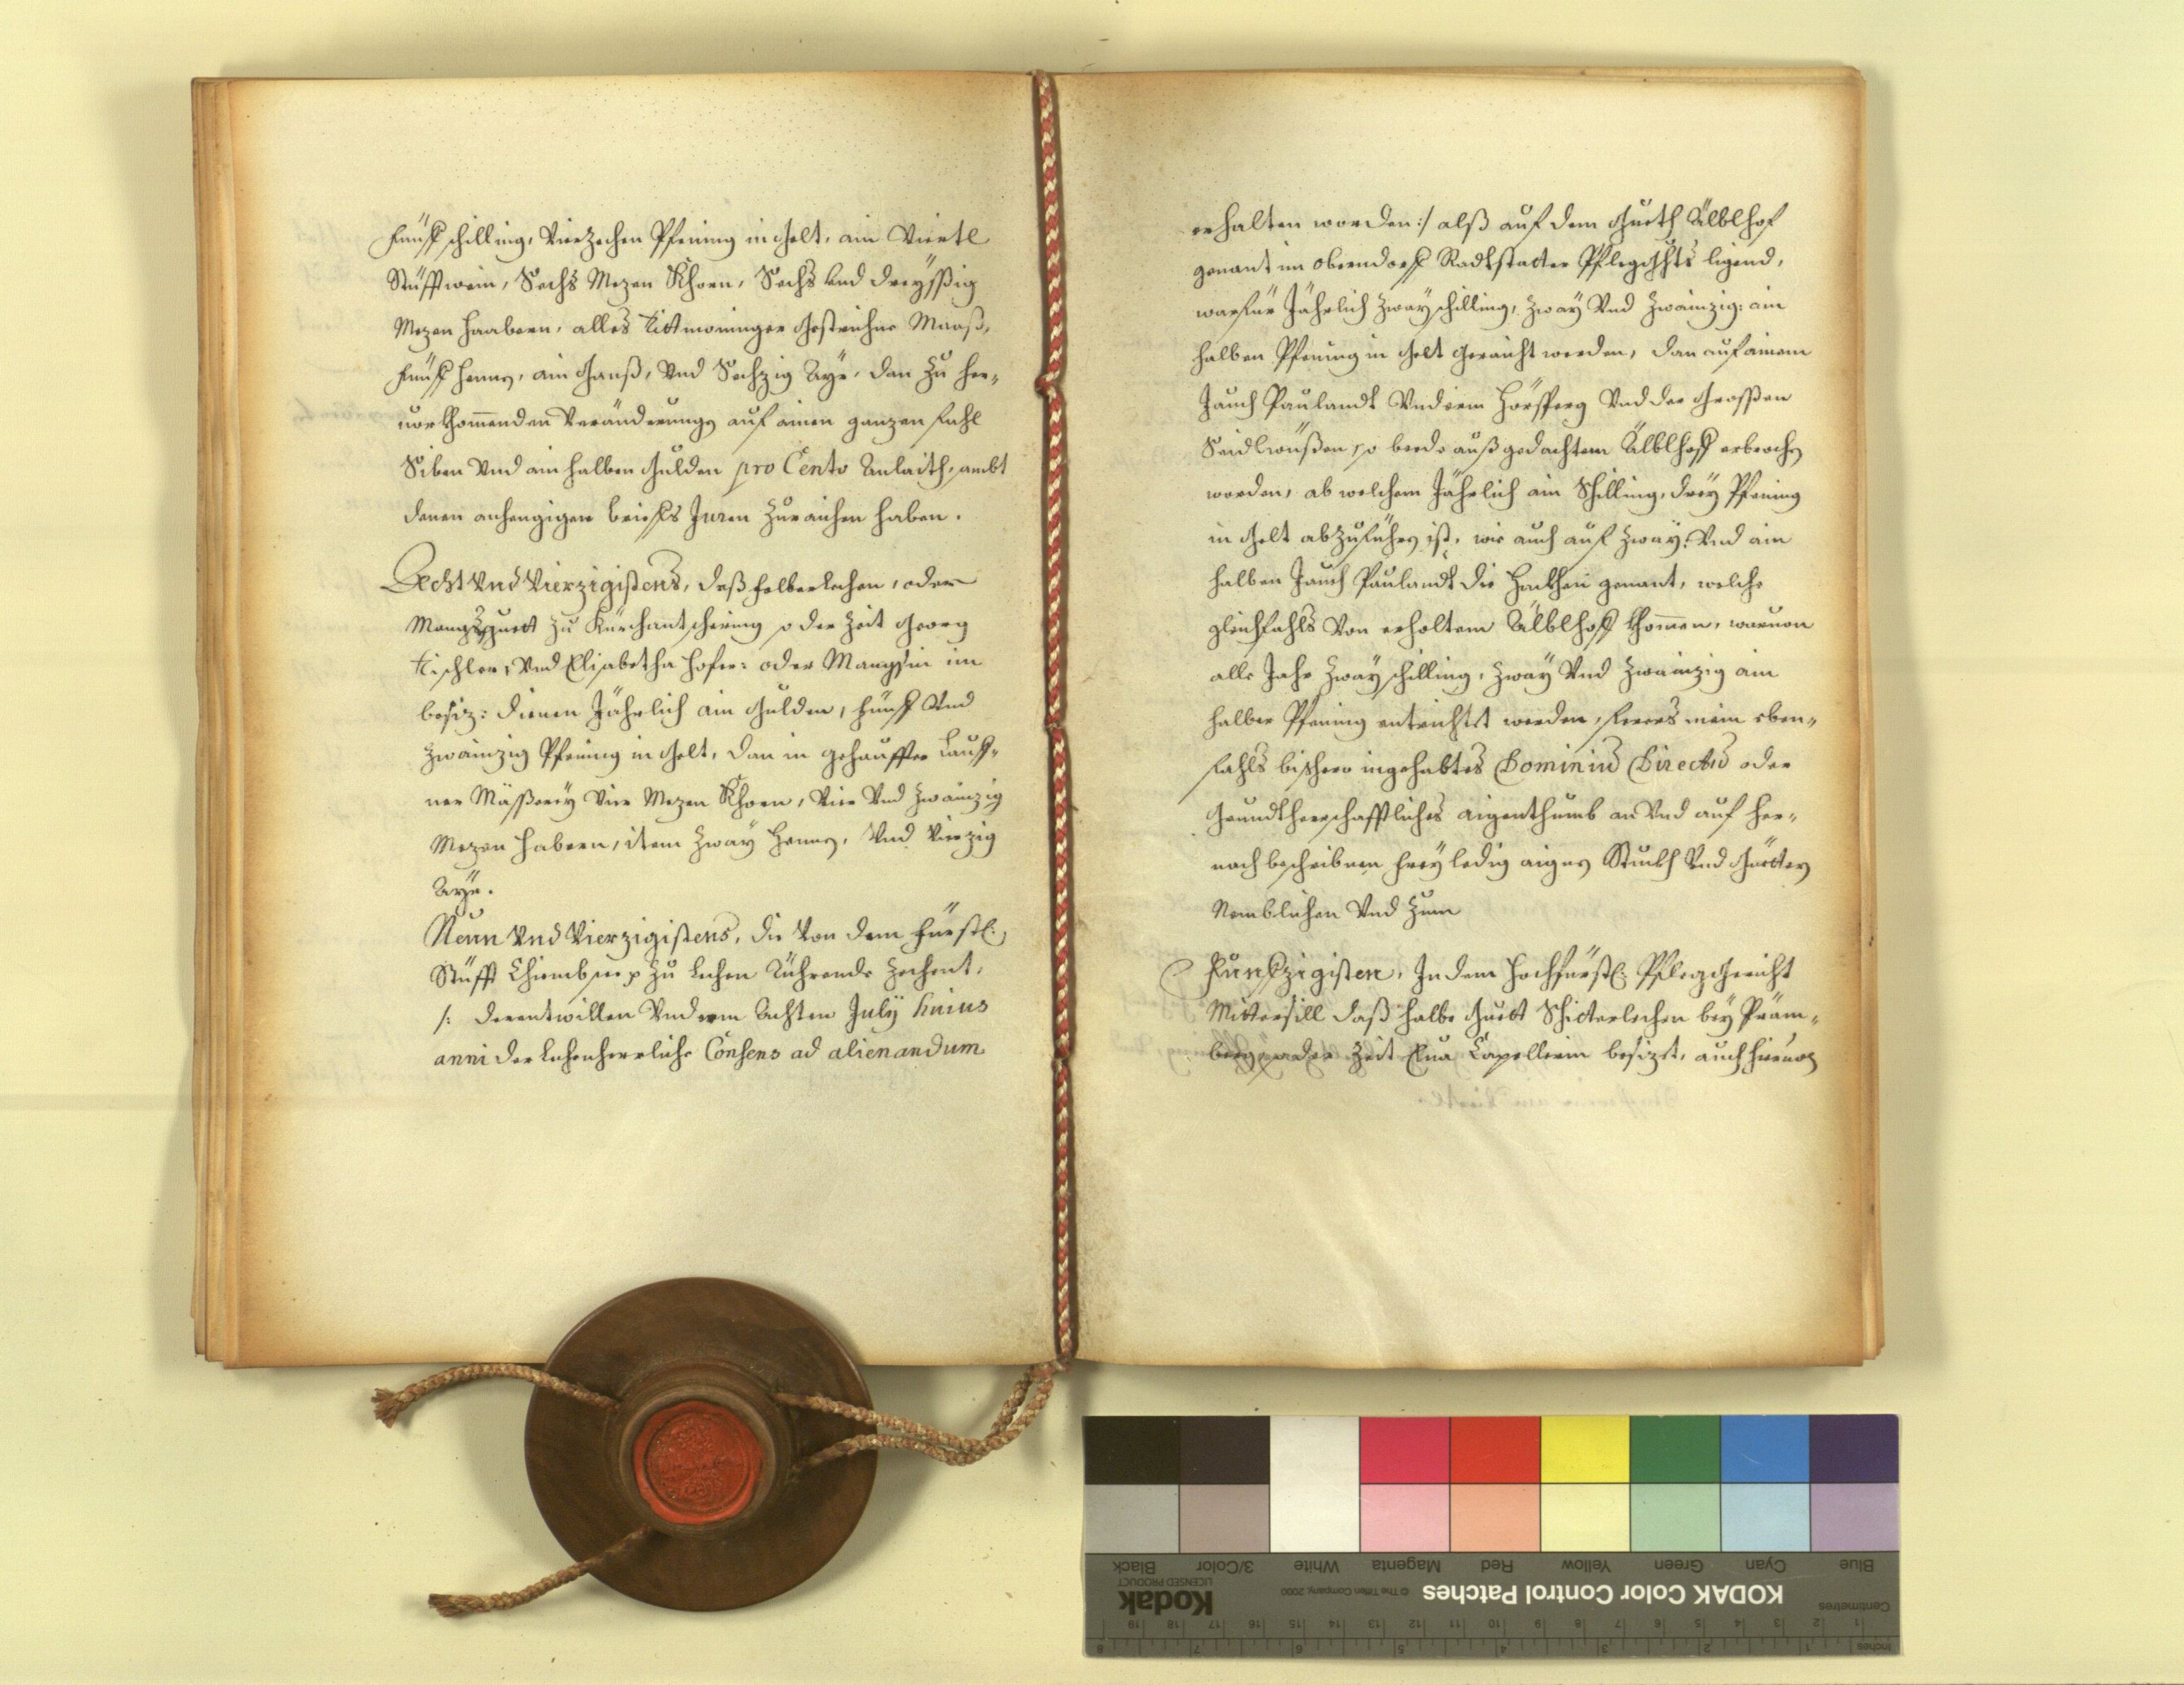 fünff schilling, Vierzechen Pfening in Gelt, ain Viertl
Stüfftwein, Sechs Mezen Khorn, Sechs und dreyssig
Mezen Haabern, alles Tittmoninger Gestrichne Maaß,
fünff Hennen, ain Ganß, Und Sechzig Ayr, dan zu her-
vorkhommenden Veränderungen auf ainen ganzen fahl
Siben Und ain halben Gulden pro Cento Anlaith, sambt
denen anhengigen briefs Juren zuraichen haben.
Acht Und Vierzigistens, daß Felberlechen, oder
Mangsguett zu Kürchantschering so der Zeit Georg
Tischler, Und Elisabetha Hofer: oder Mangsin im
besiz: dienen Jährlich ain Gulden, fünff Und
zwainzig Pfening in Gelt, dan in gehauffter Lauff-
ner Mässerey Vier Mezen Khorn, Vier Und zwainzig
Mezen Habern, item zway Hennen, Und Vierzig
Ayr.
Neun Und Vierzigistens, die Von dem Fürstl:
Stüfft Chiembsee zu Lechen Rührende Zechent,
/: derentwillen Underm Achten July huius
anni der Lechenherrliche Consens ad alienandum
erhalten worden :/ alß auf dem Gueth Älblhof
genant im oberndorff Radtstatter Pfleggchts ligend,
warfür Jährlich zway schilling, zway Und zwainzig: ain
halben Pfening in Gelt geraicht werden, dan auf ainem
Jauch Paulandt Underm Hörsperg Und der Grossen
Seidlwüßen, so beede auß gedachtem Älblhoff erbrochen
worden, ab welchem Jährlich ain Schilling, drey Pfening
in Gelt abzuführen ist, wie auch auf zway: Und ain
halben Jauch Paulandt die genant, welche
gleichfahls Von erholtem Älblhoff khommen, warvon
alle Jahr zway schilling, zway Und zwainzig ain
halber Pfening entrichtet werden, ferers mein eben-
fahls bishero ingehabtes Dominium Directum oder
Grundtherrschafftliches aigenthumb an Und auf her-
nach beschribnen frey ledig aignen Stuckh Und Güetter
Nemblichen Und zum
Funffzigisten, In dem Hochfürstl: Pfleg Gericht
Mittersill daß halbe Guett Schitterlechen bey Präm-
berg, so der Zeit Eua Capellerin besizt, auch hieuon